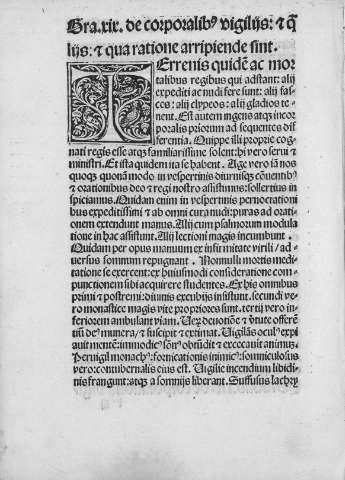 Gra.xix. de corporalibꝰ vigilijs: ⁊ q̄
lijs: ⁊ qua ratione arripiende sint.
TErrenis quidē ac mor
talibus regibus qui adstant: alij
expediti ac nudi fere sunt: alij fas-
ces: alij clypeos: alij gladios te-
nent. Est autem ingens atqꝫ incor
poralis priorum ad sequentes dif
ferentia. Quippe illi proprie cog-
nati regis esse atqꝫ familiarissime solent: hi vero serui ⁊
ministri. Et ista quidem ita se habent. Age vero iā nos
quoqꝫ quonā modo in vespertinis diurnisqꝫ cōuentibꝰ
⁊ orationibus deo ⁊ regi nostro assistimus: sollertius in
spiciamus. Quidam enim in vespertinis pernoctationi
bus expeditissimi ⁊ ab omni cura nudi: puras ad orati-
onem extendunt manus. Alij cum psalmorum modula
tione in hac assistunt. Alij lectioni magis incumbunt.
Quidam per opus manuum ex infirmitate virili/ ad-
uersus somnum repugnant. Nonnulli mortis medi-
tatione se exercent: ex huiusmodi consideratione com-
punctionem sibi acquirere studentes. Ex his omnibus
primi ⁊ postremi: diuinis excubijs insistunt. secundi ve-
ro monastice magis vite propriores sunt. tertij vero in-
feriorem ambulant viam. Uerū deuotiōe ⁊ v̄tute offerē
tiū deꝰ munera/ ⁊ suscipit ⁊ extimat. Uigilās oculꝰ expi
auit mentē: immodicꝰ sōnꝰ obtūdit ⁊ excecauit animū.
Peruigil monachꝰ: fornicationis inimicꝰ: somniculosus
vero: contubernalis eius est. Uigilie incendium libidi-
nis frangunt: atqꝫ a somnijs liberant. Suffusus lachry